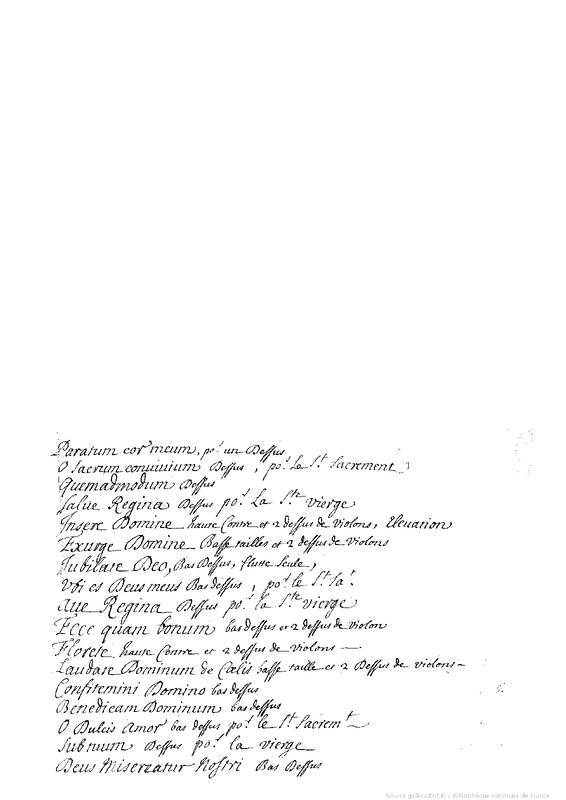 Paratum cor meum, po.r un Dessus
O Sacrum conuiuium Dessus, po.r Le S.t Sacrement
Quemadmodum Dessus
Salue Regina Dessus po.r La S.te vierge
Insere Domine haute Contre et 2 dessus de Violons, Eleuation
Exurge Domine Basse tailles et 2 dessus de Violons
Jubilate Deo, Bas Dessus, flute seule,
Vbi es Deus meus Bas dessus, po.r le S.t Sa.t
Aue Regina Dessus po.r la S.te vierge
Ecce quam bonum bas dessus et 2 dessus de violon
Florete haute Contre et 2 dessus de violons —
Laudate Dominum de Cœlis basse taille et 2 Dessus de violons –
Confitemini Domino bas dessus
Benedicam Dominum bas dessus
O Dulcis Amor bas dessus po.r le S.t Sacrem.t
Sub tuum Dessus po.r la vierge
Deus Misereatur Nostri Bas Dessus
Source gallica.bnf.fr / Bibliothèque nationale de France